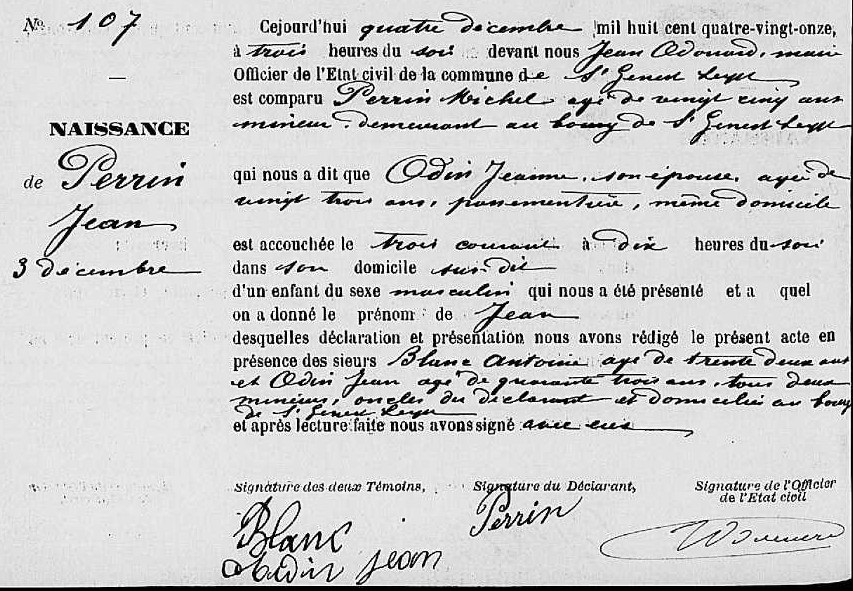 No. 107
NAISSANCE
de Perrin
Jean
3 décembre
Cejourd'hui quatre décembre mil huit cent quatre-vingt-onze,
à trois heures du soir devant nous Jean Odouard, maire
Officier de l'Etat civil de la commune de St Genest Lerpt
est comparu Perrin Michel agé de vingt cinq ans
mineur demeurant au bourg de St Genest Lerpt
qui nous a dit que Odin Jeanne, son épouse, agée de
vingt trois ans, passementière, même domicile
est accouchée le trois courant à dix heures du soir
dans son domicile sus-dit
d'un enfant du sexe masculin qui nous a été présenté et a quel
on a donné le prénom de Jean
desquelles déclaration et présentation nous avons rédigé le présent acte en
présence des sieurs Blanc Antoine agé de trente deux ans
et Odin Jean agé de quarante trois ans, tous deux
mineurs, oncles du déclarant et domiciliés au bourg
de St Genest Lerpt
et après lecture faite nous avons signé avec eux
Signature des deux Témoins,
Signature du Déclarant,
Signature de l'Officier
de l'Etat civil
Perrin
Blanc
Odin jean